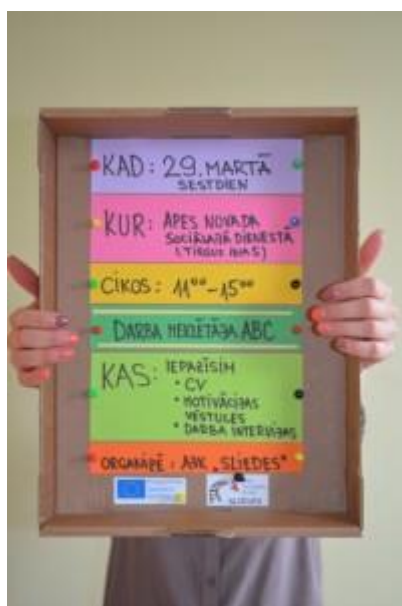 KAD: 29. MARTĀ
SESTDIEN
KUR: APES NOVADA
SOCIĀLAJĀ DIENESTĀ
(TIRGUS IELAS)
CIKOS: 11⁰⁰-15⁰⁰
DARBA MEKLĒTĀJA ABC
KAS: IEPAZĪSIM
• CV
• MOTIVĀCIJAS
VĒSTULES
• DARBA INTERVIJAS
ORGANIZĒ: AJK „SLIEDES"